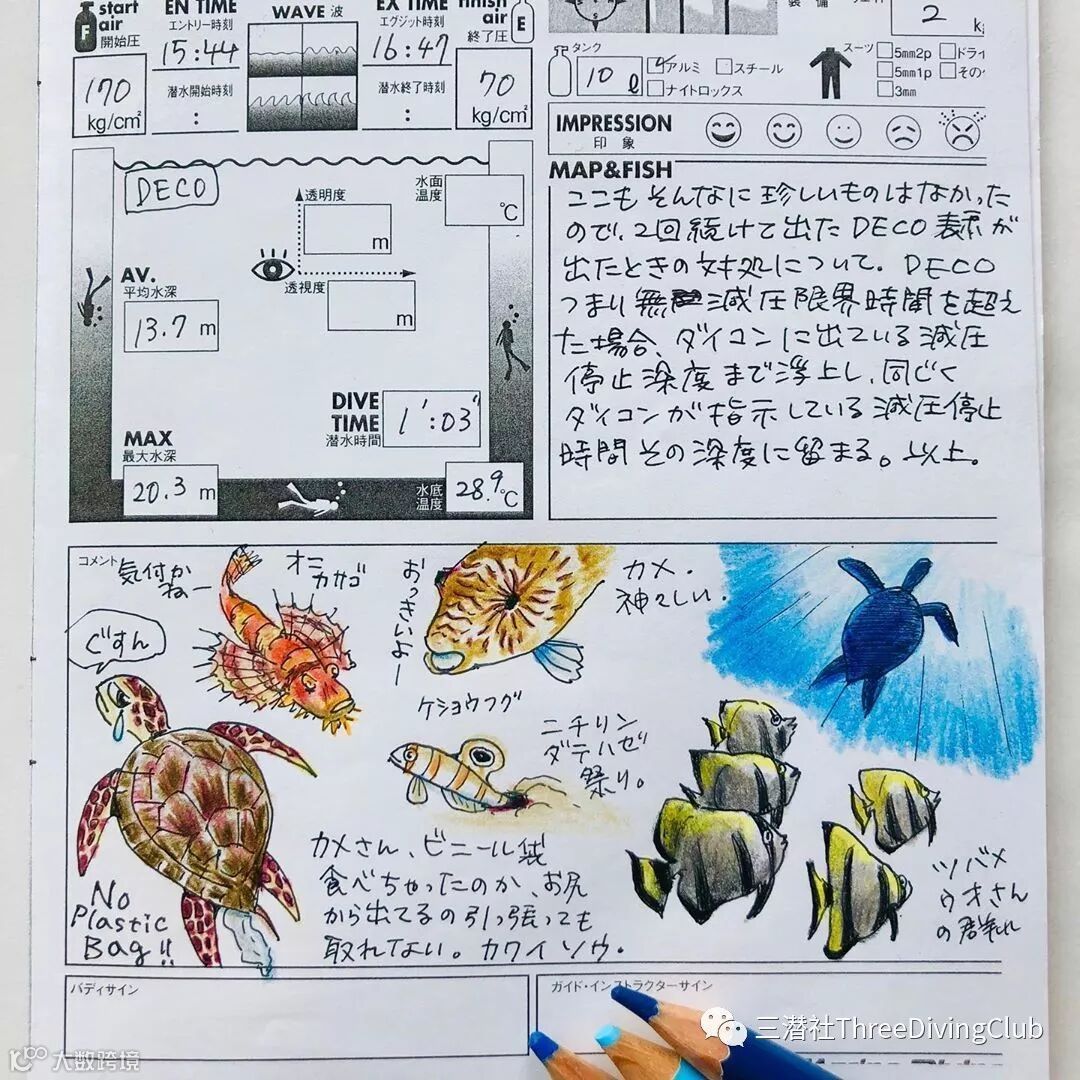 start
air
開始圧
F
170
kg/cm²
EN TIME
エントリー時刻
15:44
潜水開始時刻
:
WAVE 波
EX TIME
エグジット時刻
16:47
潜水終了時刻
:
finish
air
終了圧
E
70
kg/cm²
装備
2
タンク
10 ℓ
アルミ
スチール
ナイトロックス
スーツ
5mm2p
ドライ
5mm1p
3mm
IMPRESSION
印象
DECO
透明度
m
透視度
m
水面
温度
℃
AV.
平均水深
13.7 m
DIVE
TIME
潜水時間
1':03"
MAX
最大水深
20.3 m
水底
温度
28.9℃
MAP&FISH
ここもそんなに珍しいものはなかった
ので、2回続けて出たDECO表示が
出たときの対処について。DECO
つまり無減圧限界時間を超え
た場合、ダイコンに出ている減圧
停止深度まで浮上し、同じく
ダイコンが指示している減圧停止
時間その深度に留まる。以上。
コメント
気付か
ねー
オニ
カサゴ
おっきいよー
カメ.
神々しい.
ぐすん
ケショウフグ
ニチリン
ダテハゼ
祭り。
カメさん、ビニール袋
食べちゃったのか、お尻
から出てるの引っ張っても
取れてない。カワイソウ.
No
Plastic
Bag!!
ツバメ
ウオさん
の群れ
バディサイン
ガイド・インストラクターサイン
三潜社ThreeDivingClub
大数跨境